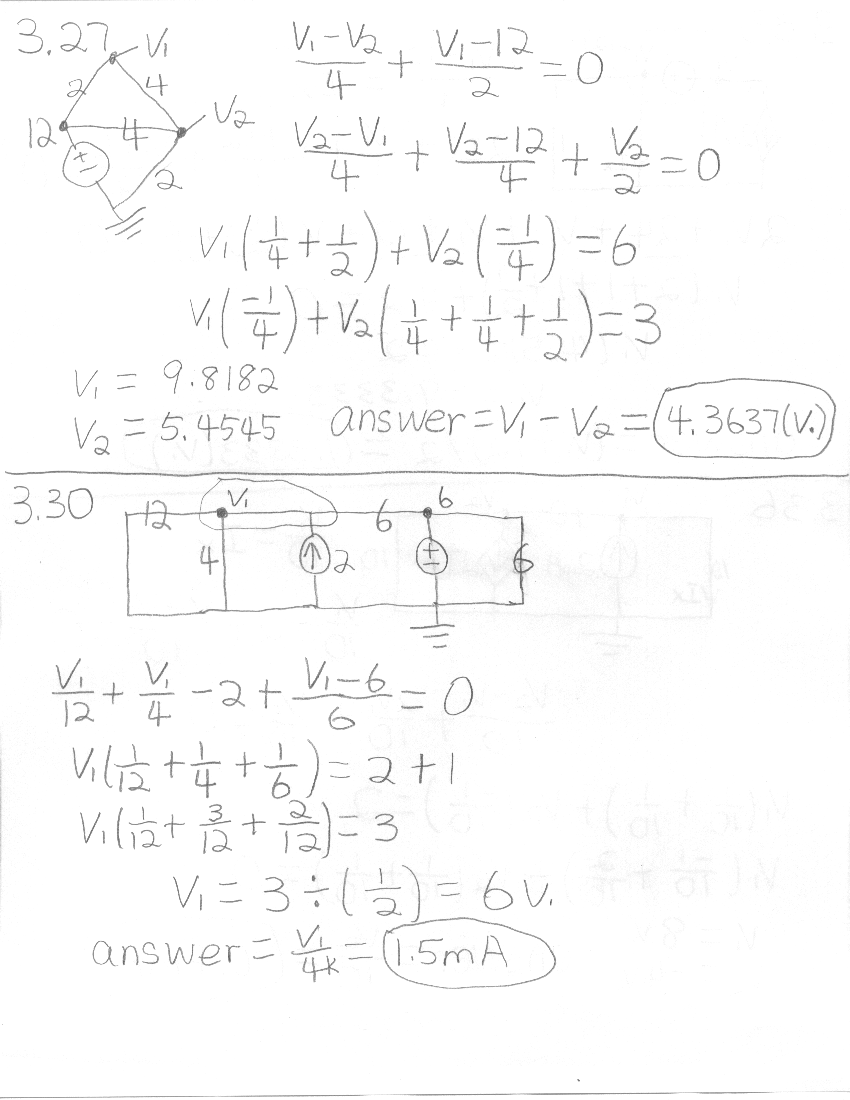 3.27
V1
2
4
V2
12
4
±
2
(V1-V2)/4 + (V1-12)/2 = 0
(V2-V1)/4 + (V2-12)/4 + V2/2 = 0
V1(1/4 + 1/2) + V2(-1/4) = 6
V1(-1/4) + V2(1/4 + 1/4 + 1/2) = 3
V1 = 9.8182
V2 = 5.4545 answer = V1 - V2 = 4.3637(V.)
3.30
12 V1 6 6
4 ↑ 2 ± 6
V1/12 + V1/4 - 2 + (V1-6)/6 = 0
V1(1/12 + 1/4 + 1/6) = 2 + 1
V1(1/12 + 3/12 + 2/12) = 3
V1 = 3 ÷ (1/2) = 6 V.
answer = V1/4k = 1.5mA